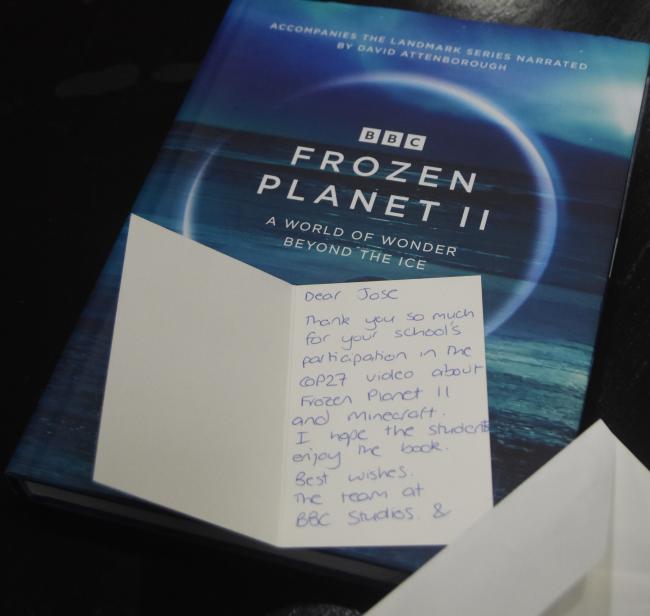 ACCOMPANIES THE LANDMARK SERIES NARRATED
BY DAVID ATTENBOROUGH
BBC
FROZEN
PLANET II
A WORLD OF WONDER
BEYOND THE ICE
Dear Jose
Thank you so much
for your school's
participation in the
COP27 video about
Frozen Planet II
and Minecraft.
I hope the students
enjoy the book.
Best wishes.
The team at
BBC Studios. &